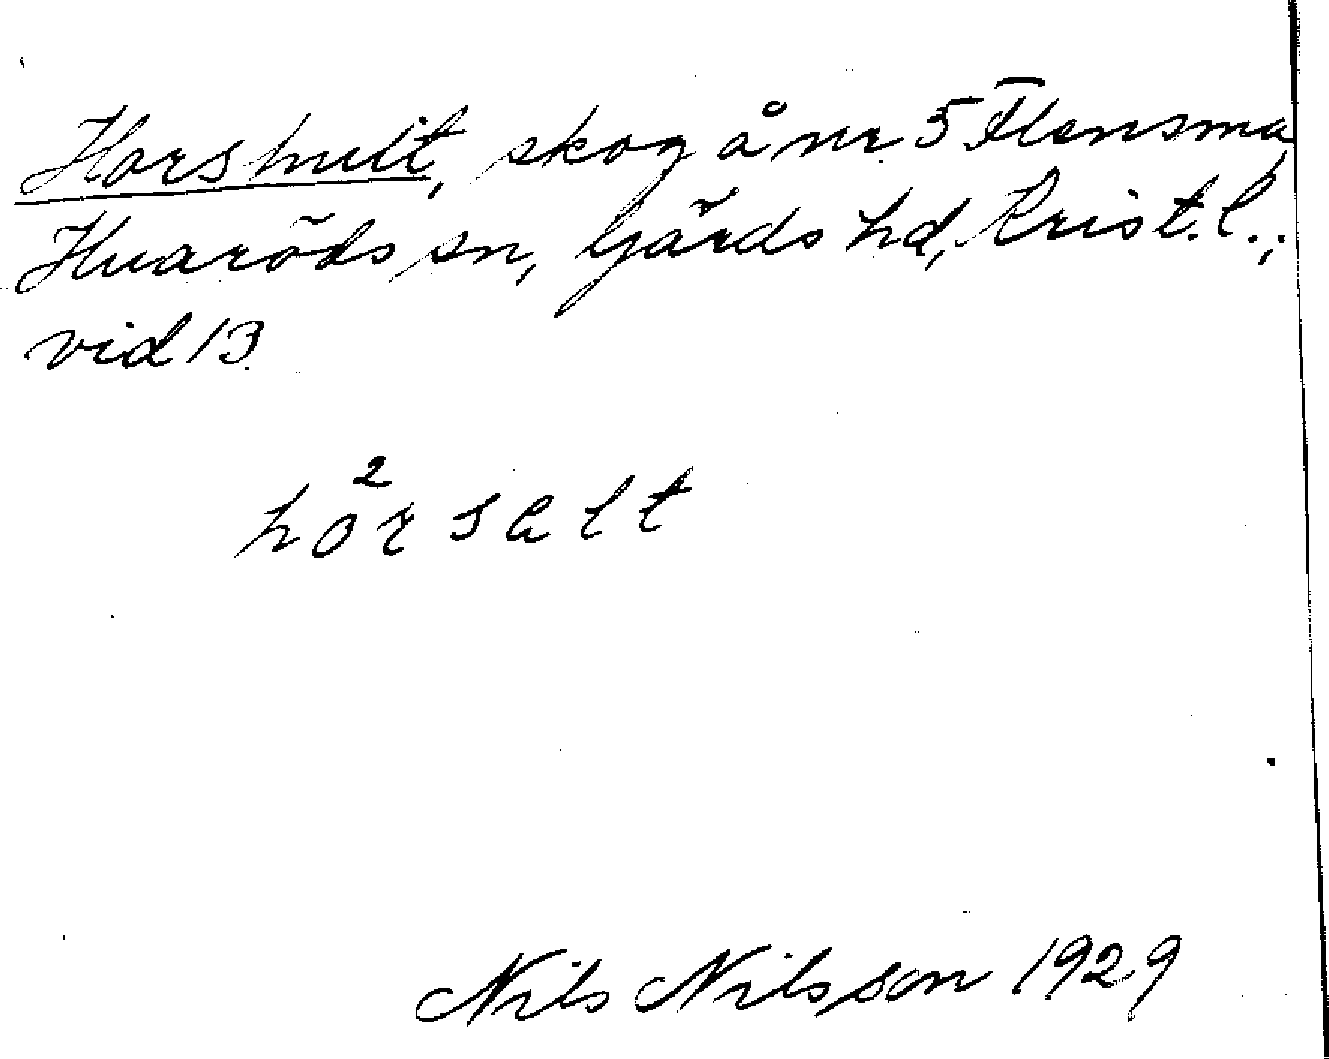 Horshult, skog å nr 5 Flensma,
Huaröds sn, Gärds hd, Krist. l.;
vid 13.
ho²rsalt
Nils Nilsson 1929